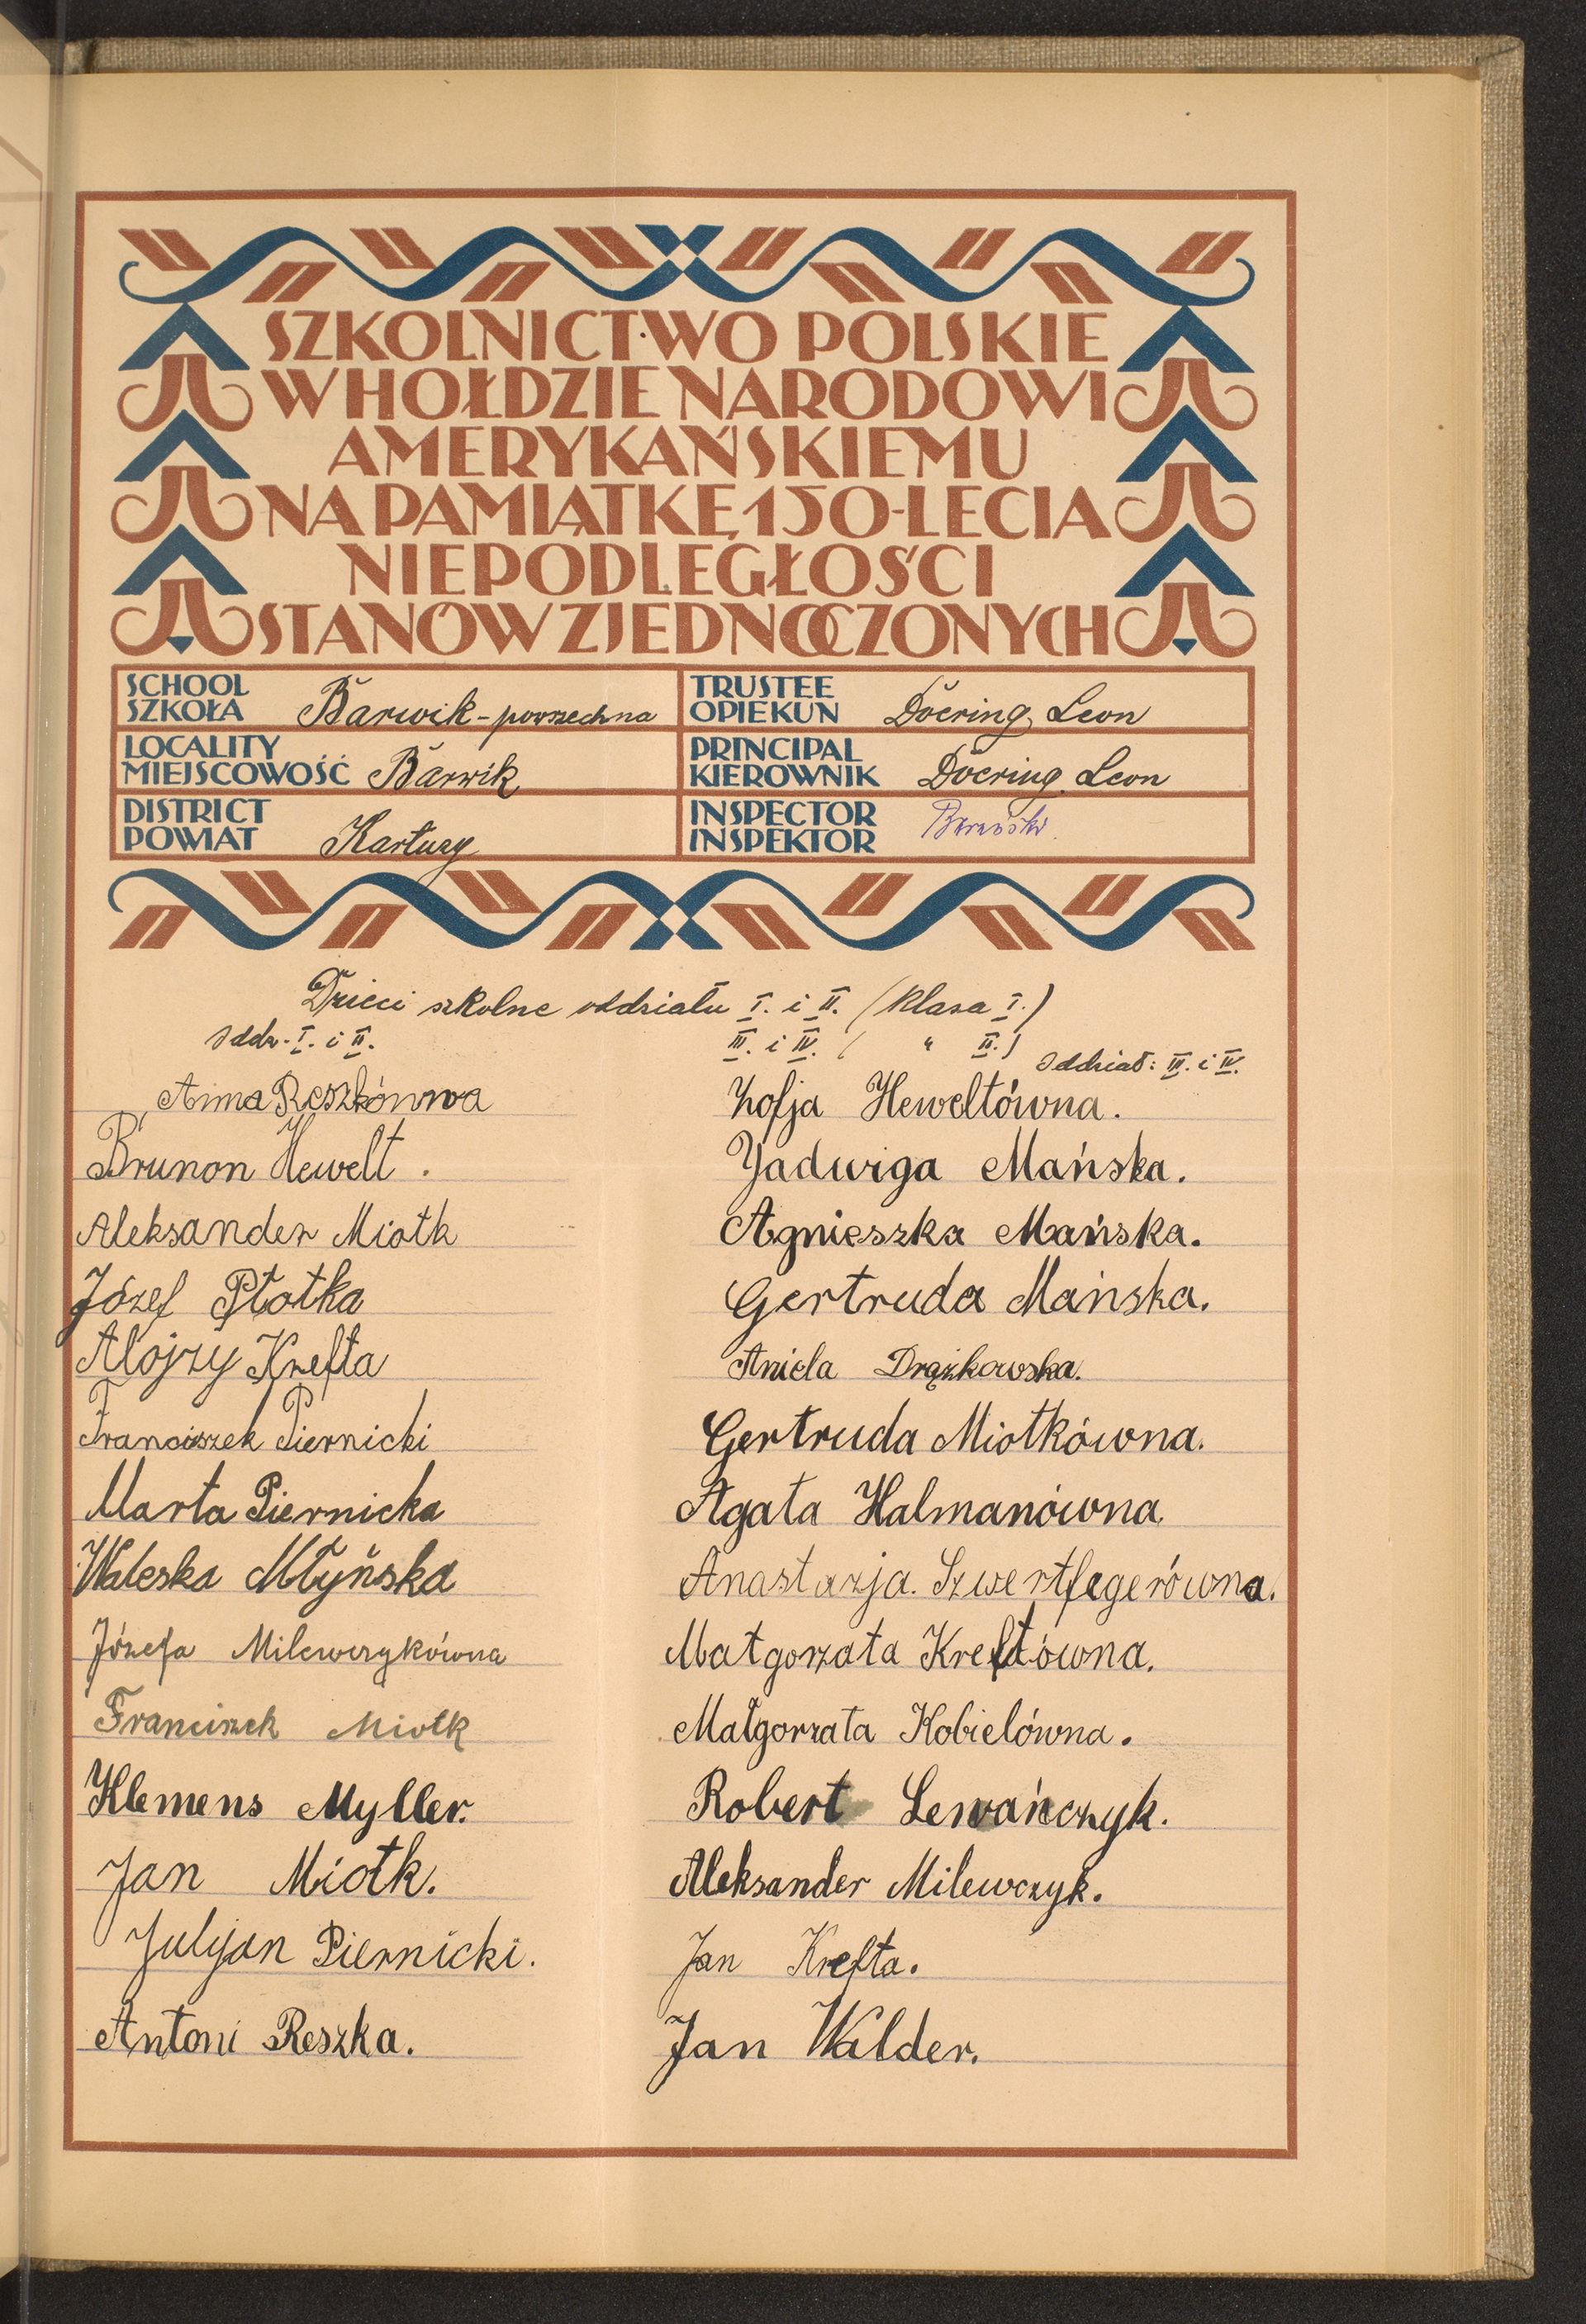 SZKOLNICTWO POLSKIE
W HOŁDZIE NARODOWI
AMERYKAŃSKIEMU
NA PAMIĄTKĘ 150-LECIA
NIEPODLEGŁOŚCI
STANÓW ZJEDNOCZONYCH
SCHOOL
SZKOŁA Barwik - powszechna
TRUSTEE
OPIEKUN Döering, Leon
LOCALITY
MIEJSCOWOŚĆ Barwik
PRINCIPAL
KIEROWNIK Döering, Leon
DISTRICT
POWIAT Kartuzy
INSPECTOR
INSPEKTOR
Dzieci szkolne oddziału I. i II. (klasa I.)
III. i IV. ( " II.)
Oddz. I. i II.
Oddział: III. i IV.
Anna Reszkówna
Brunon Hewelt.
Aleksander Miotk
Józef Płotka
Alojzy Krefta
Franciszek Piernicki
Marta Piernicka
Waleska Młyńska
Józefa Milewczykówna
Franciszek Miotk
Klemens Myller.
Jan Miotk.
Julijan Piernicki.
Antoni Reszka.
Zofja Heweltówna.
Jadwiga Mańska.
Agnieszka Mańska.
Gertruda Mańska.
Aniela Drążkowska.
Gertruda Miotkówna.
Agata Halmanówna
Anastazja. Szwertfegerówna.
Małgorzata Kreftówna.
Małgorzata Kobielówna.
Robert Lewańczyk.
Aleksander Milewczyk.
Jan Krefta.
Jan Walder.